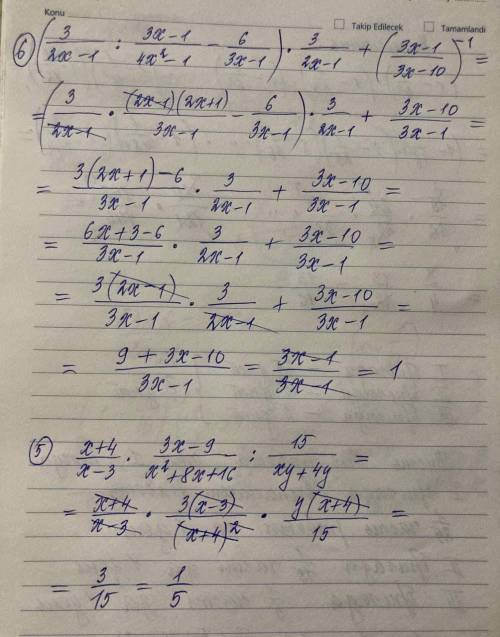 Konu
Takip Edilecek Tamamlandı
6) (3/(2x-1) : (3x-1)/(4x²-1) - 6/(3x-1)) · 3/(2x-1) + ((3x-1)/(3x-10))⁻¹ =
= (3/(2x-1) · (2x-1)(2x+1)/(3x-1) - 6/(3x-1)) · 3/(2x-1) + (3x-10)/(3x-1) =
= (3(2x+1)-6)/(3x-1) · 3/(2x-1) + (3x-10)/(3x-1) =
= (6x+3-6)/(3x-1) · 3/(2x-1) + (3x-10)/(3x-1) =
= 3(2x-1)/(3x-1) · 3/(2x-1) + (3x-10)/(3x-1) =
= (9+3x-10)/(3x-1) = (3x-1)/(3x-1) = 1
5) (x+4)/(x-3) · (3x-9)/(x²+8x+16) : 15/(xy+4y) =
= (x+4)/(x-3) · 3(x-3)/(x+4)² · y(x+4)/15 =
= 3/15 = 1/5